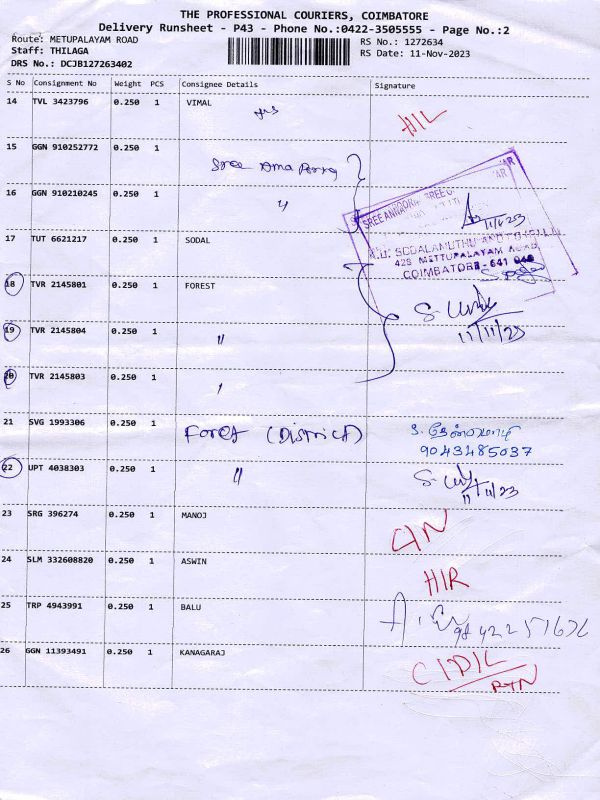 THE PROFESSIONAL COURIERS, COIMBATORE
Delivery Runsheet - P43 - Phone No.:0422-3505555 - Page No.:2
Route: METUPALAYAM ROAD
Staff: THILAGA
DRS No.: DCJB127263402
RS No.: 1272634
RS Date: 11-Nov-2023
S No Consignment No Weight PCS Consignee Details Signature
14 TVL 3423796 0.250 1 VIMAL
15 GGN 910252772 0.250 1
Sree
16 GGN 910210245 0.250 1 "
17 TUT 6621217 0.250 1 SODAL
425 METTUPALAYAM ROAD,
COIMBATORE - 641 043
18 TVR 2145801 0.250 1 FOREST
11/11/23
19 TVR 2145804 0.250 1 "
20 TVR 2145803 0.250 1 "
21 SVG 1993306 0.250 1 Forest (District)
9043485037
22 UPT 4038303 0.250 1 " 11/11/23
23 SRG 396274 0.250 1 MANOJ
24 SLM 332608820 0.250 1 ASWIN
25 TRP 4943991 0.250 1 BALU
26 GGN 11393491 0.250 1 KANAGARAJ
RTN